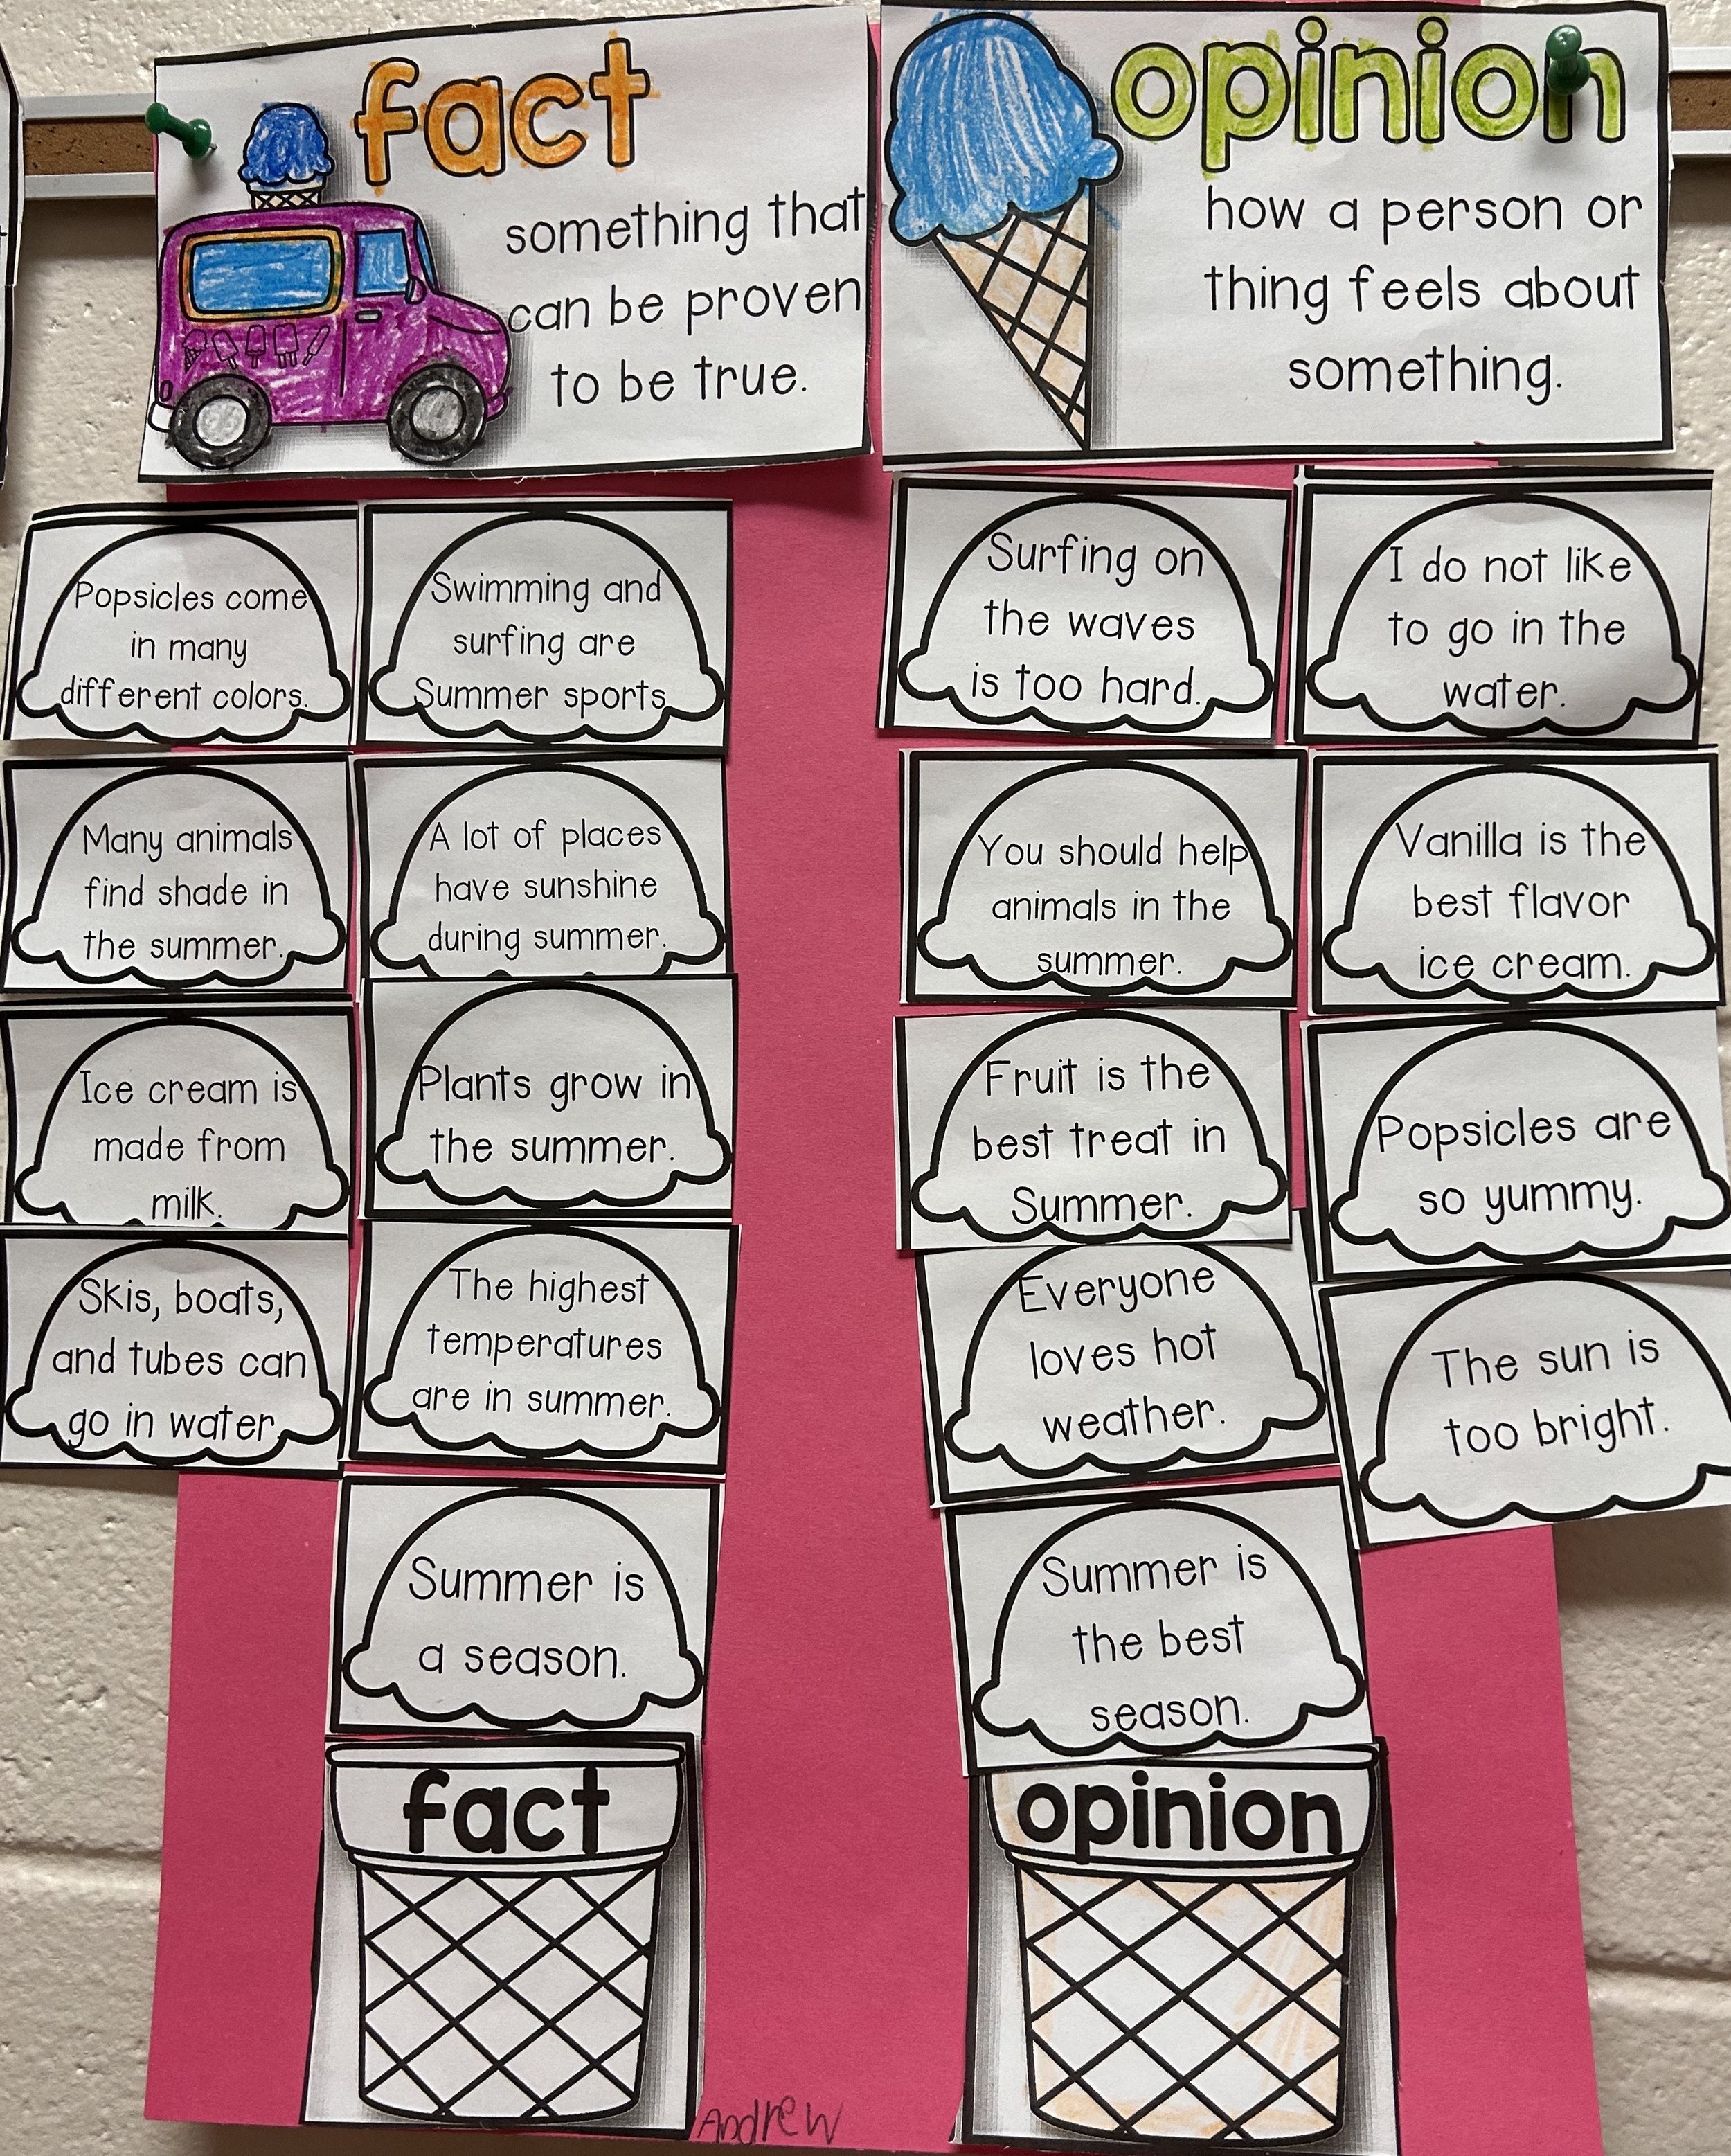 fact
something that
can be proven
to be true.
opinion
how a person or
thing feels about
something.
Popsicles come
in many
different colors.
Swimming and
surfing are
Summer sports
Many animals
find shade in
the summer.
A lot of places
have sunshine
during summer.
Ice cream is
made from
milk.
Plants grow in
the summer.
Skis, boats,
and tubes can
go in water.
The highest
temperatures
are in summer.
Summer is
a season.
fact
Surfing on
the waves
is too hard.
I do not like
to go in the
water.
You should help
animals in the
summer.
Vanilla is the
best flavor
ice cream.
Fruit is the
best treat in
Summer.
Popsicles are
so yummy.
Everyone
loves hot
weather.
The sun is
too bright.
Summer is
the best
season.
opinion
Andrew